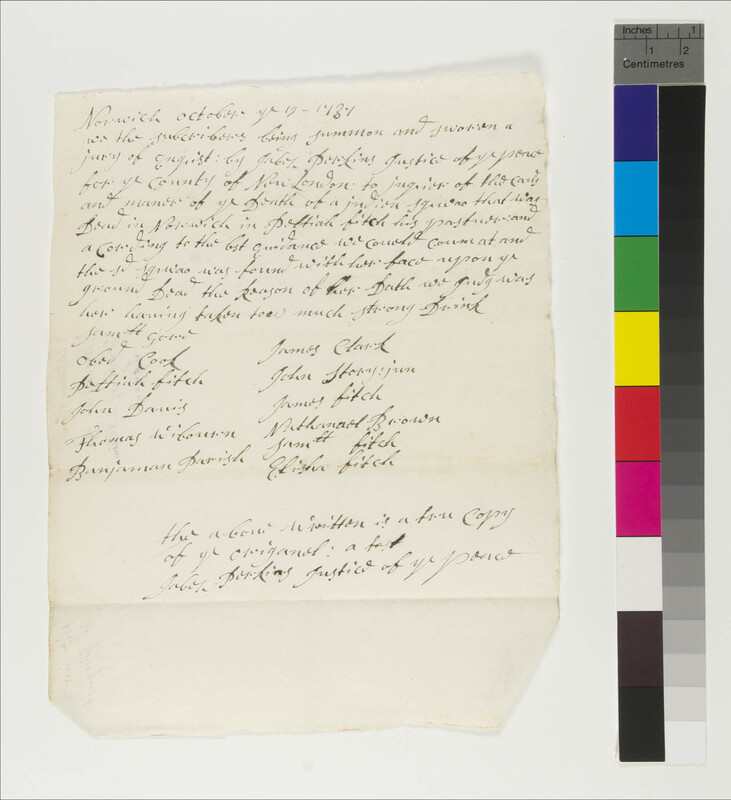 Norwich october ye 17 - 1737
we the subscribers being summon and sworen a
jury of Enquist: by Jabez Perkins Justice of ye peace
for ye County of New London: to inquier of the Caus
and maner of ye Death of a indien squao that was
Dead in Norwich in Peltiah fitch his pastuer: and
a Cording to the bst guidance we Coueld Coum at and
the sd squao was found with her face upon ye
ground Dead the Reason of her Dath we Judg was
her having taken too much strong Drink
Samll Gore
obed Cook
James Clark
Peltiah fitch
John Story: jun
John Davis
James fitch
Thomas Wibourn
Nathanael Brown
Samll fitch
Banjaman Parish
Elisha fitch
the above Written is a tru Copy
of ye origanel: a test
Jabez Perkins Justice of ye Peace
Inches 1
1 2
Centimetres